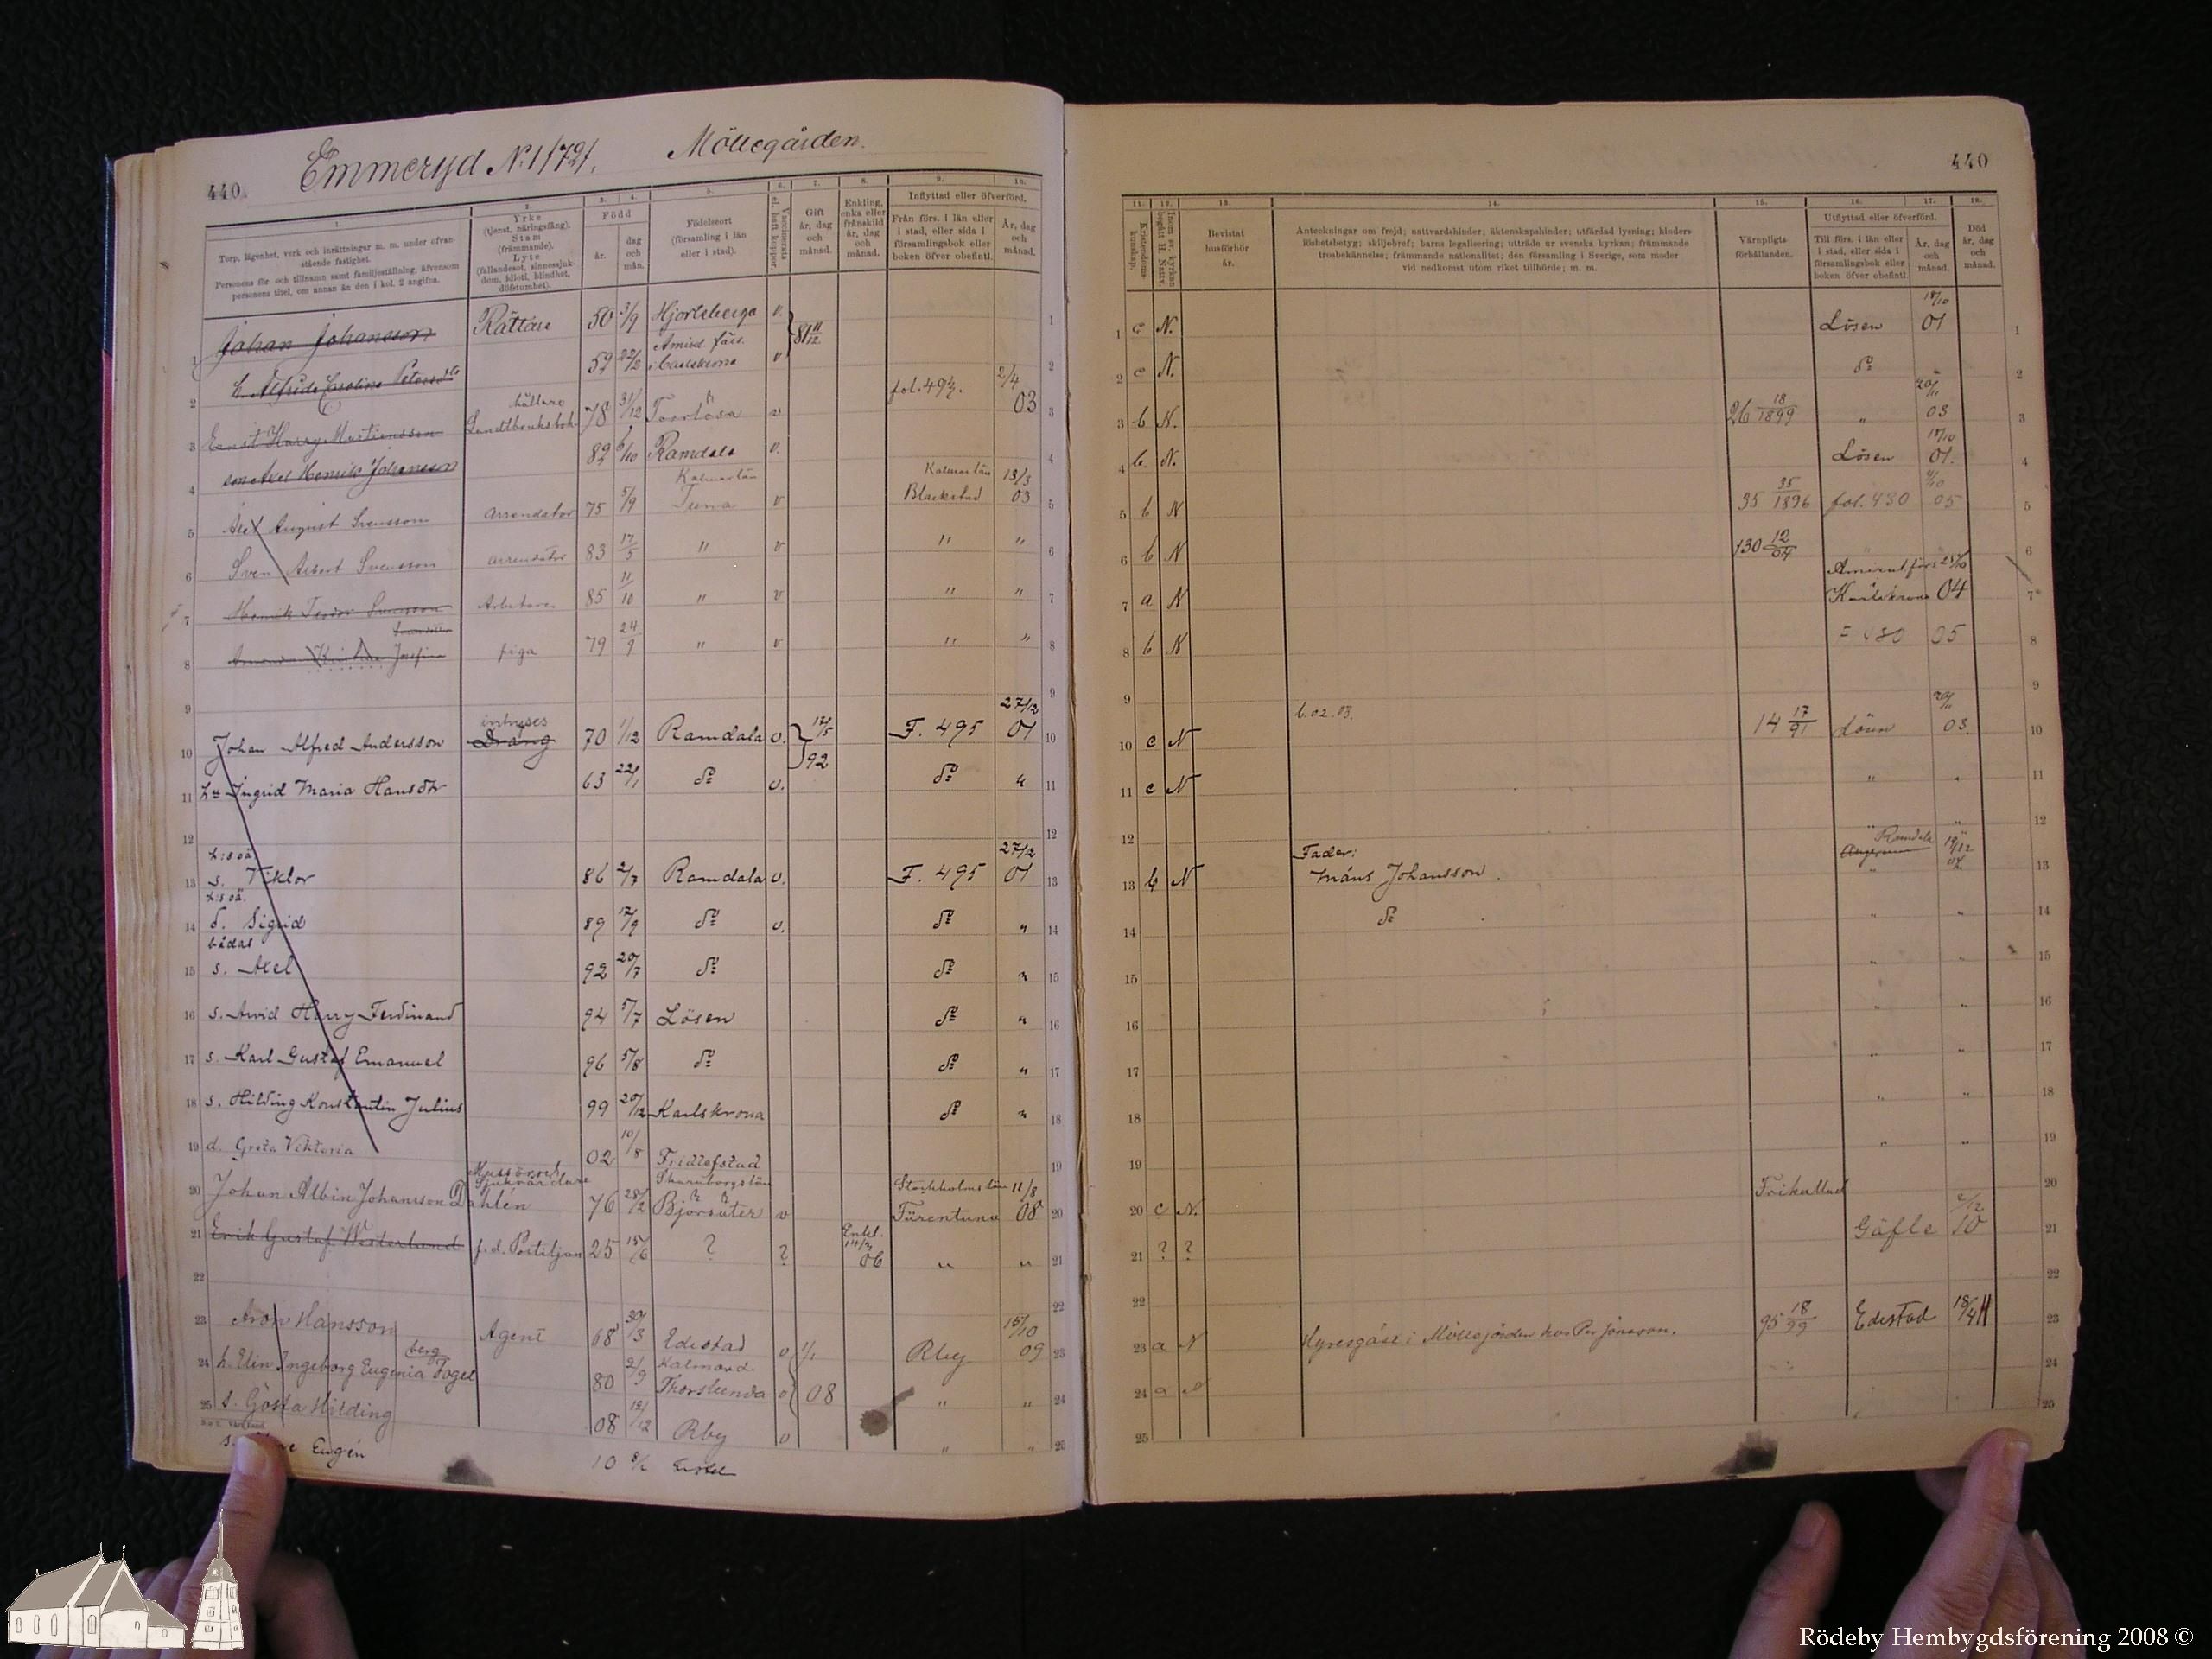 440. Emmeryd N:1 /72/. Möllegården.
1. 2. 3. 4. 5. 6. 7. 8. 9. 10.
Torp, lägenhet, verk och inrättningar m. m. under ofvanstående fastighet.
Personens för- och tillnamn samt familjeställning, äfvensom personens titel, om annan än den i kol. 2 angifna.
Yrke (tjenst, näringsfång). Stam (främmande). Lyte (fallandesot, sinnessjukdom, idioti, blindhet, döfstumhet).
Född
år. dag och mån.
Födelseort (församling i län eller i stad).
Gift år, dag och månad.
Enkling, enka eller frånskild år, dag och månad.
Inflyttad eller öfverförd.
Från förs. i län eller i stad, eller sida i församlingsbok eller boken öfver obefintl.
År, dag och månad.
1 Johan Johansson Rättare 50 3/9 Hjortsberga v. 81 11/12 1
2 59 22/2 Amird. förs. i Carlskrona v 2
3 Ernst Harry Landtbruksbok 78 31/12 v fol. 2/4 03 3
4 son Axel Henrik Johansson 82 Ramdala v. 4
5 August Svensson arrendator 75 5/9 Kalmar län Tuna v Kalmar län Blackstad 13/3 03 5
6 Sven Albert Svensson arrendator 83 17/5 " v " " 6
7 Henrik Svensson Arbetare 85 11/10 " v " " 7
8 Josefina Svensson piga 79 24/9 " v " " 8
9 9
10 Johan Alfred Andersson inhyses Dräng 70 1/12 Ramdala v. 17/5 92 F. 495 27/12 01 10
11 hu Ingrid Maria Hansdtr 63 22/1 do v. do " 11
12 12
13 h:s oä s. Viktor 86 2/7 Ramdala v. F. 495 27/2 01 13
14 h:s oä. d. Sigrid 89 17/9 do v. do " 14
15 bådas s. Axel 92 20/7 do do " 15
16 s. Arvid Harry Ferdinand 94 5/7 Lösen do " 16
17 s. Karl Gustaf Emanuel 96 5/8 do do " 17
18 s. Hilding Konstantin Julius 99 20/12 Karlskrona do " 18
19 d. Greta Viktoria 02 10/8 Fridlefstad 19
20 Johan Albin Johansson Dahlén Sjukvårdare 76 28/2 Skaraborgs län Björsäter v Stockholms län Turentuna 11/8 08 20
21 Erik Gustaf Westerlund f.d. Postiljon 25 15/6 ? ? Enkl. 06 " " 21
22 22
23 Aron Hansson Agent 68 30/3 Edestad v 1/1 Rby 15/10 09 23
24 h. Elin Ingeborg Eugenia Fogelberg 80 2/9 Kalmar l. v 08 " " 24
25 s. Gösta Hilding 08 12 Rby v " " 25
Eugén 10
440
11. 12. 13. 14. 15. 16. 17. 18.
Kristendomskunskap.
Bevistat husförhör år.
Anteckningar om frejd; nattvardshinder; äktenskapshinder; utfärdad lysning; hinderslöshetsbetyg; skiljobref; barns legalisering; utträde ur svenska kyrkan; främmande trosbekännelse; främmande nationalitet; den församling i Sverige, som moder vid nedkomst utom riket tillhörde; m. m.
Värnpligtsförhållanden.
Utflyttad eller öfverförd.
Till förs. i län eller i stad, eller sida i församlingsbok eller boken öfver obefintl.
År, dag och månad.
Död år, dag och månad.
1 c N. Lösen 18/10 01 1
2 c N. do 2
3 b N. 26 18/1899 " 20/11 03 3
4 b. N. Lösen 18/10 01. 4
5 b N 35 35/1896 fol. 480 05 5
6 b N 130 12/04 6
7 a N Amiral. förs Karlskrona 04 7
8 b N = 480 05 8
9 b. 02. 03. 9
10 c N 14 17/91 Lösen 20/11 03. 10
11 c N " " 11
12 Fader: " " 12
13 b N Måns Johansson. Ramdala 13
14 do " " 14
15 " " 15
16 " " 16
17 " " 17
18 " " 18
19 " " 19
20 c N. Frikallad 20
21 ? ? Gäfle 2/12 10 21
22 22
23 a N Hyresgäst i Möllegården hos Per Jönsson. 95 18/99 Edestad 18/4 11 23
24 a N 24
25 25
Rödeby Hembygdsförening 2008 ©